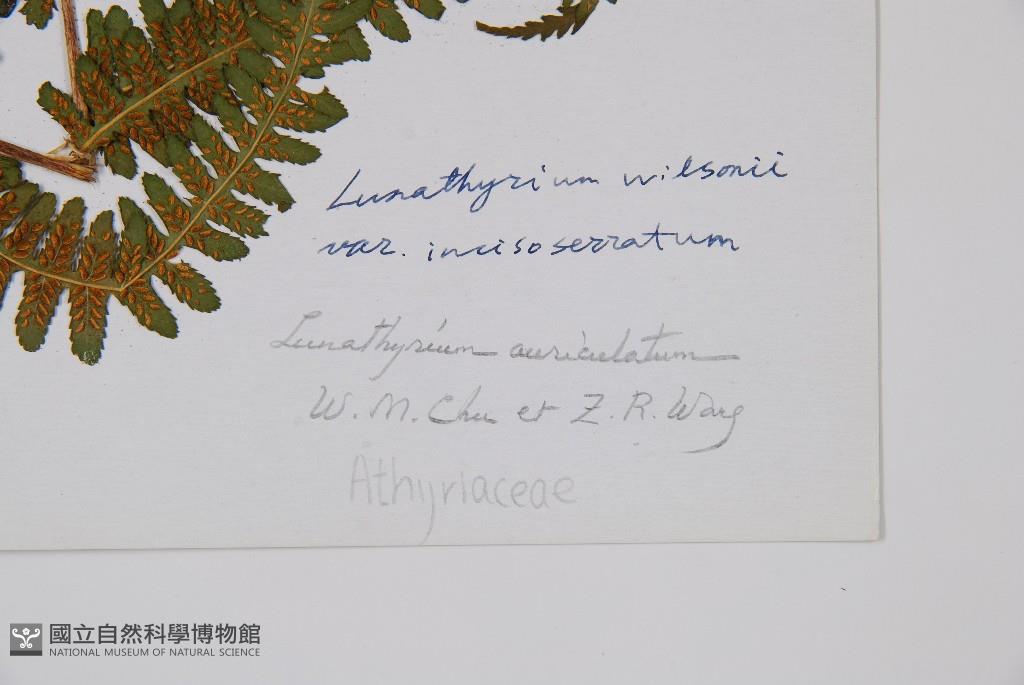 Lunathyrium wilsonii
var. incisoserratum
Lunathyrium auriculatum
W. M. Chu et Z. R. Wang
Athyriaceae
國立自然科學博物館
NATIONAL MUSEUM OF NATURAL SCIENCE